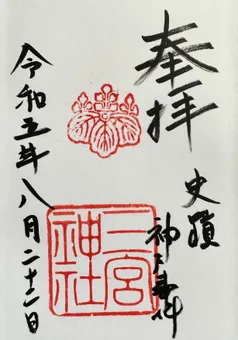 奉拝
史蹟
神戸事件
三宮神社
令和五年八月二十二日